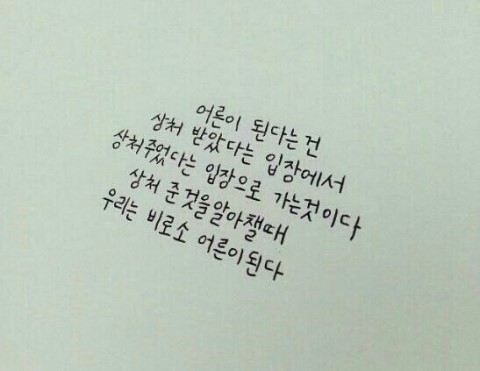 어른이 된다는건
상처 받았다는 입장에서
상처주었다는 입장으로 가는것이다
상처 준것을알아챌때
우리는 비로소 어른이된다